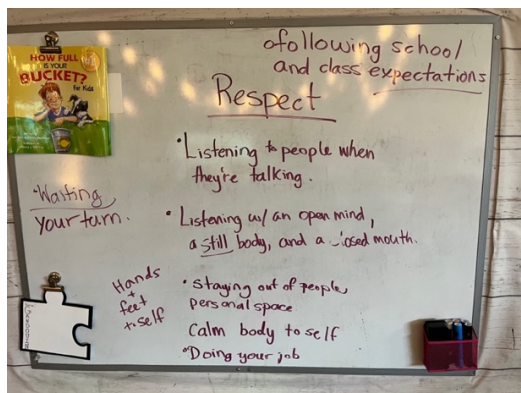 HOW FULL
IS YOUR
BUCKET?
For Kids
following school
and class expectations
Respect
Listening to people when
they're talking.
Waiting
your turn.
Listening w/ an open mind,
a still body, and a closed mouth.
Hands
+
feet
to self
Staying out of people
personal space
Calm body to self
Doing your job